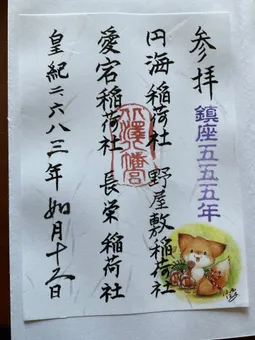 参拝
鎮座五五五年
円海稲荷社 野屋敷稲荷社
愛宕稲荷社 長栄稲荷社
皇紀二六八三年 如月十五日